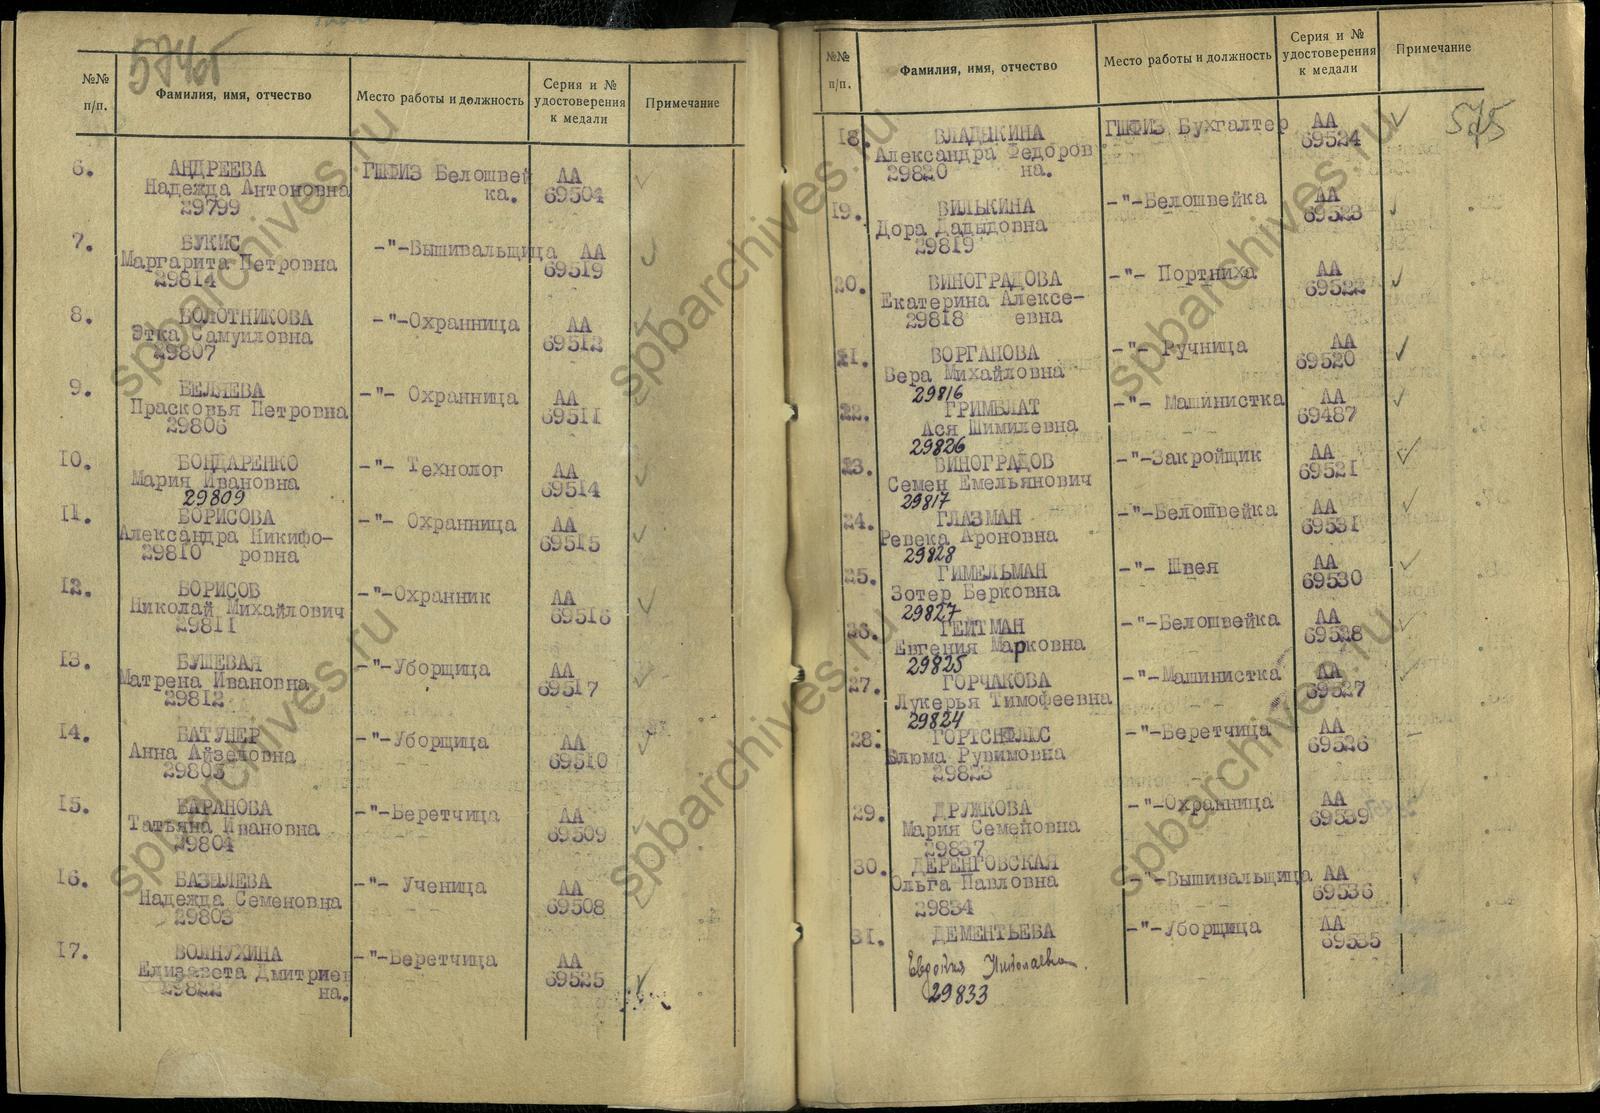 574об
№№ п/п.
Фамилия, имя, отчество
Место работы и должность
Серия и № удостоверения к медали
Примечание
6. АНДРЕЕВА ГШФИЗ Белошвей АА
Надежда Антоновна ка. 69504
29799
7. БУКИС -"-Вышивальщица АА
Маргарита Петровна 69519
29814
8. БОЛОТНИКОВА -"-Охранница АА
Этка Самуиловна 69512
29807
9. БЕЛЯЕВА -"- Охранница АА
Прасковья Петровна 69511
29806
10. БОНДАРЕНКО -"- Технолог АА
Мария Ивановна 69514
29809
11. БОРИСОВА -"- Охранница АА
Александра Никифо- 69515
29810 ровна
12. БОРИСОВ -"-Охранник АА
Николай Михайлович 69516
29811
13. БУШЕВАЯ -"-Уборщица АА
Матрена Ивановна 69517
29812
14. БАТУНЕР -"-Уборщица АА
Анна Айзеловна 69510
29805
15. БАРАНОВА -"-Беретчица АА
Татьяна Ивановна 69509
29804
16. БАЗЫЛЕВА -"- Ученица АА
Надежда Семеновна 69508
29803
17. ВОЛНУХИНА -"-Беретчица АА
Елизавета Дмитриев 69525
29822 на.
575
№№ п/п.
Фамилия, имя, отчество
Место работы и должность
Серия и № удостоверения к медали
Примечание
18. ВЛАДЫКИНА ГШФИЗ Бухгалтер АА
Александра Федоров 69524
29820 на.
19. ВИЛЬКИНА -"-Белошвейка АА
Дора Дадыдовна 69523
29819
20. ВИНОГРАДОВА -"- Портниха АА
Екатерина Алексе- 69522
29818 евна
21. ВОРГАНОВА -"- Ручница АА
Вера Михайловна 69520
29816
22. ГРИМБЛАТ -"- Машинистка АА
Ася Шимилевна 69487
29826
23. ВИНОГРАДОВ -"-Закройщик АА
Семен Емельянович 69521
29817
24. ГЛАЗМАН -"-Белошвейка АА
Ревека Ароновна 69531
29828
25. ГИМЕЛЬМАН -"- Швея АА
Зотер Берковна 69530
29827
26. ГЕЙТМАН -"-Белошвейка АА
Евгения Марковна 69528
29825
27. ГОРЧАКОВА -"-Машинистка АА
Лукерья Тимофеевна 69527
29824
28. -"-Беретчица АА
Блюма Рувимовна 69526
29823
29. ДРУЖКОВА -"-Охранница АА
Мария Семеновна 69539
29837
30. ДЕРЕНГОВСКАЯ -"-Вышивальщица АА
Ольга Павловна 69536
29834
31. ДЕМЕНТЬЕВА -"-Уборщица АА
Евдокия Николаевна. 69535
29833
spbarchives.ru
spbarchives.ru
spbarchives.ru
spbarchives.ru
spbarchives.ru
spbarchives.ru